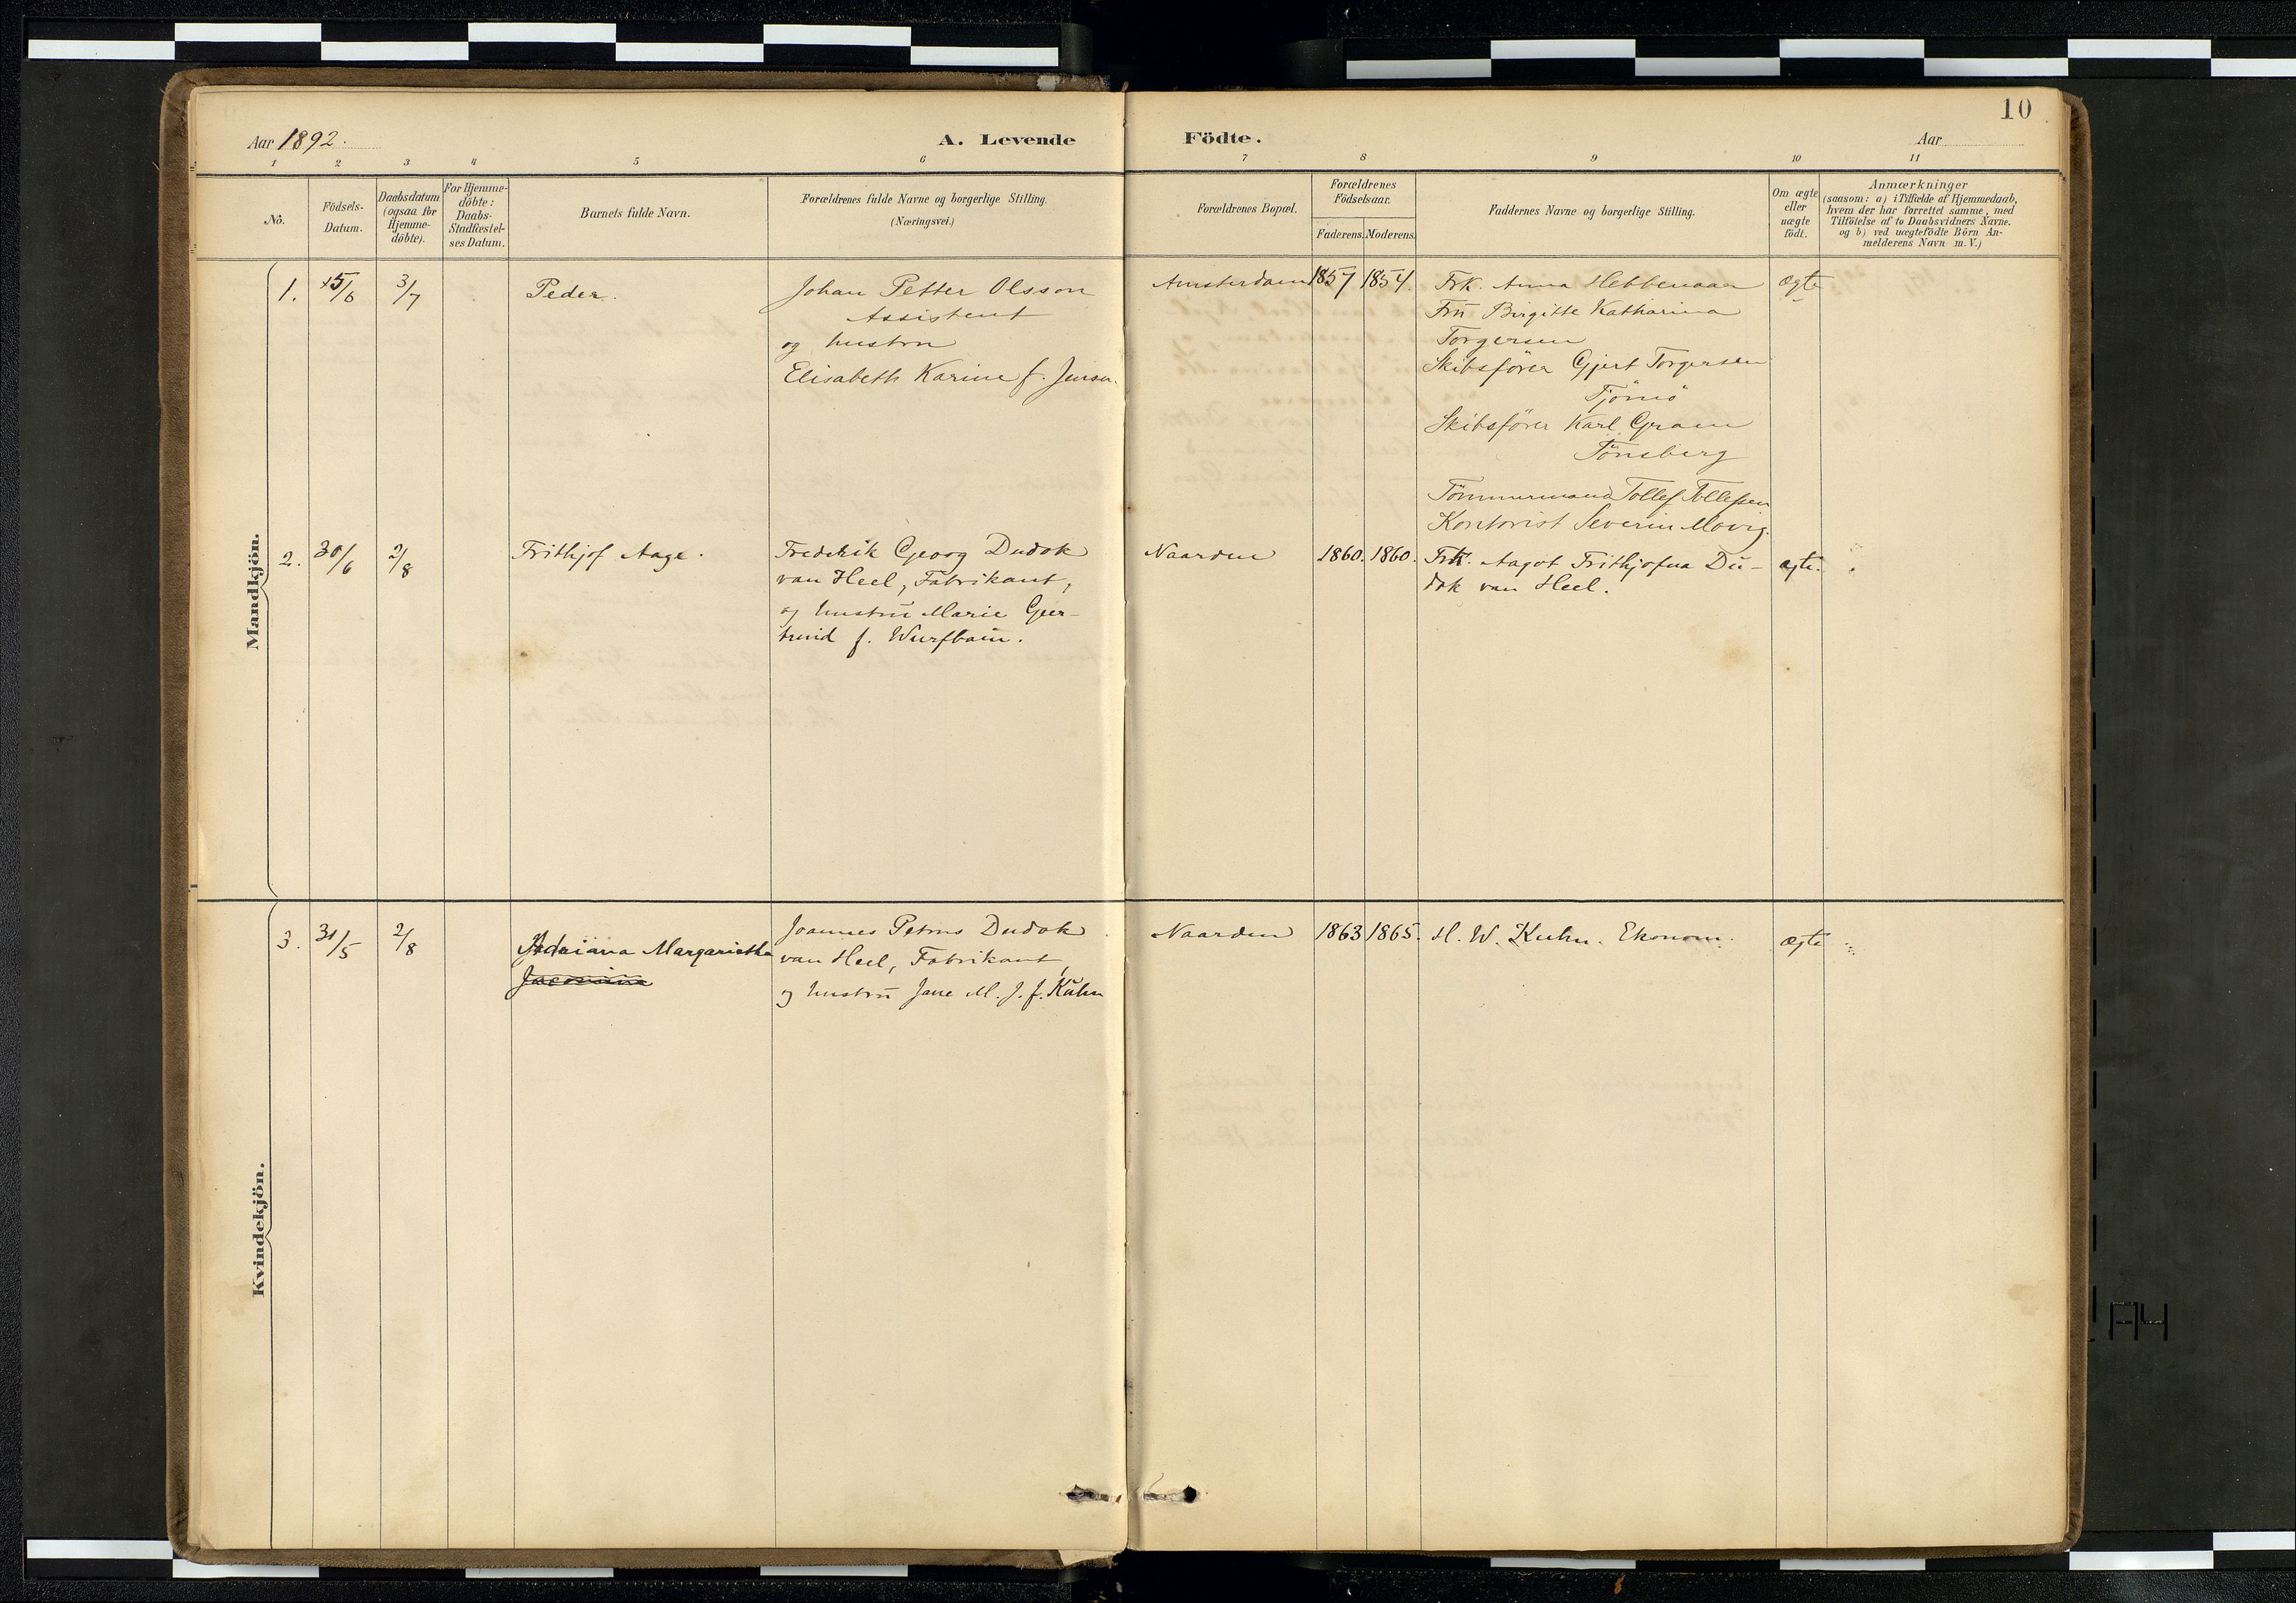 10
Aar 1892.
A. Levende
Födte.
Aar
1 2 3 4 5 6 7 8 9 10 11
No.
Födsels-
Datum.
Daabsdatum
(ogsaa for
Hjemme-
döbte).
For Hjemme-
döbte:
Daabs-
Stadfæstel-
ses Datum.
Barnets fulde Navn.
Forældrenes fulde Navne og borgerlige Stilling.
(Næringsvei.)
Forældrenes Bopæl.
Forældrenes
Födselsaar.
Faderens. Moderens.
Faddernes Navne og borgerlige Stilling.
Om ægte
eller
uægte
födt.
Anmærkninger
(saasom: a) i Tilfælde af Hjemmedaab,
hvem der har forrettet samme, med
Tilföielse af to Daabsvidners Navne.
og b) ved uægtefödte Börn An-
melderens Navn m. V.)
Mandkjön.
1. 15/6 3/7 Peder.
Johan Petter Olsson
Assistent
og hustru
Elisabeth Karine f. Jensen.
Amsterdam 1857 1854.
Frk. Anna Hebbenaar
Frū Birgitte Katharina
Torgersen
Skibsförer Gjert Torgersen
Tjömö
Skibsförer Karl Gram
Tönsberg
Tömmermand Tollef Tollefsen
Kontorist Severin Movig.
Ægte
2. 30/6 2/8 Frithjof Aage.
Frederik Georg Dudok
van Heel, Fabrikant,
og hustrū Marie Ger-
trud f. Wurfbain.
Naarden 1860. 1860.
Frk. Aagot Frithjofna Dū-
dok van Heel.
ægte.
3. 31/5 2/8 Adriana Margarietha
Jacomina
Joannes Petrus Dudok
van Heel, Fabrikant,
og hustrū Jane M. J. f. Kūhn
Naarden 1863 1865.
H. W. Kuhn. Ekonom.
Ægte
Kvindekjön.